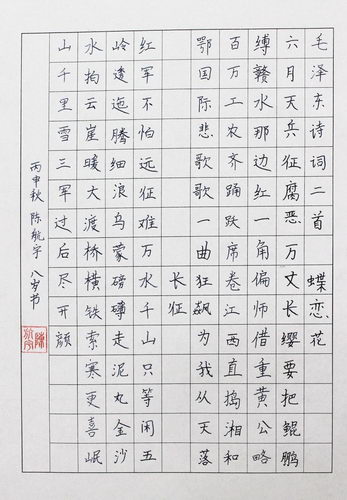 毛泽东诗词二首 蝶恋花
六月天兵征腐恶万丈长缨要把鲲鹏
缚赣水那边红一角偏师借重黄公略
百万工农齐踊跃席卷江西直捣湘和
鄂国际悲歌歌一曲狂飙为我从天落
长征
红军不怕远征难万水千山只等闲五
岭逶迤腾细浪乌蒙磅礴走泥丸金沙
水拍云崖暖大渡桥横铁索寒更喜岷
山千里雪三军过后尽开颜
丙申秋 陈航宇 八岁书
陈航宇